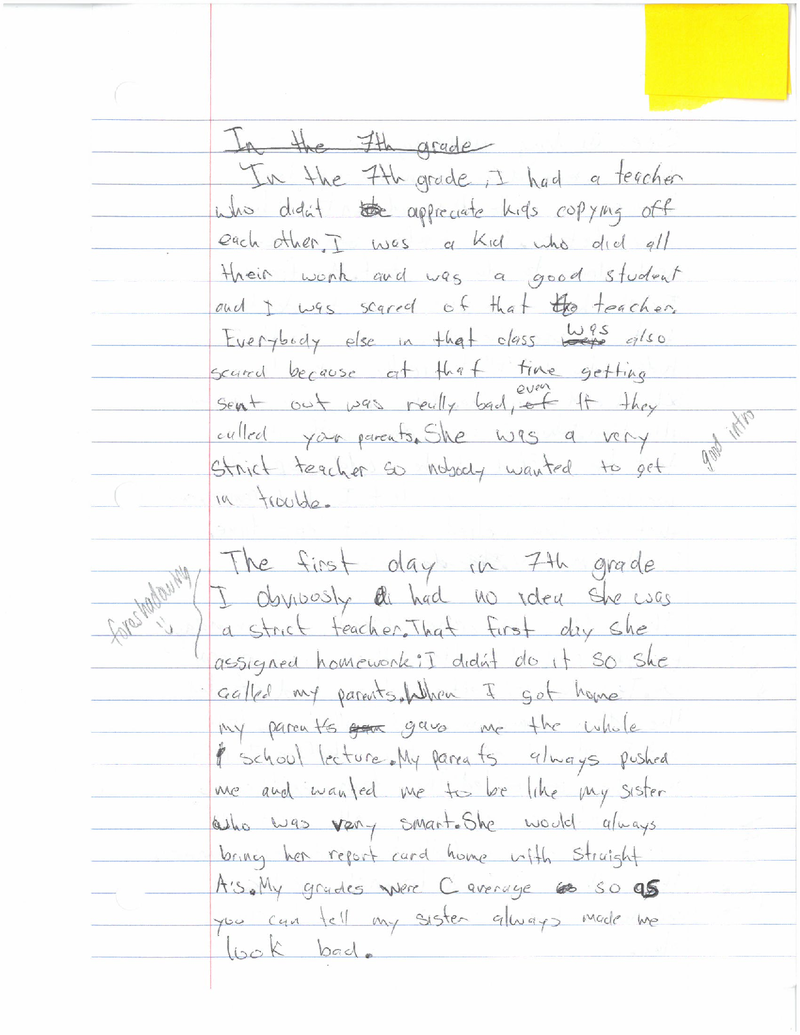 In the 7th grade
In the 7th grade, I had a teacher
who didn't appreciate kids copying off
each other. I was a kid who did all
their work and was a good student
and I was scared of that teacher.
Everybody else in that class was also
scared because at that time getting
sent out was really bad, even If they
called your parents. She was a very
strict teacher so nobody wanted to get
in trouble.
good intro
The first day in 7th grade
I obviously had no idea she was
a strict teacher. That first day she
assigned homework; I didn't do it so she
called my parents. When I got home
my parents gave me the whole
school lecture. My parents always pushed
me and wanted me to be like my sister
who was very smart. She would always
bring her report card home with straight
A's. My grades were C average so as
you can tell my sister always made me
look bad.
foreshadowing